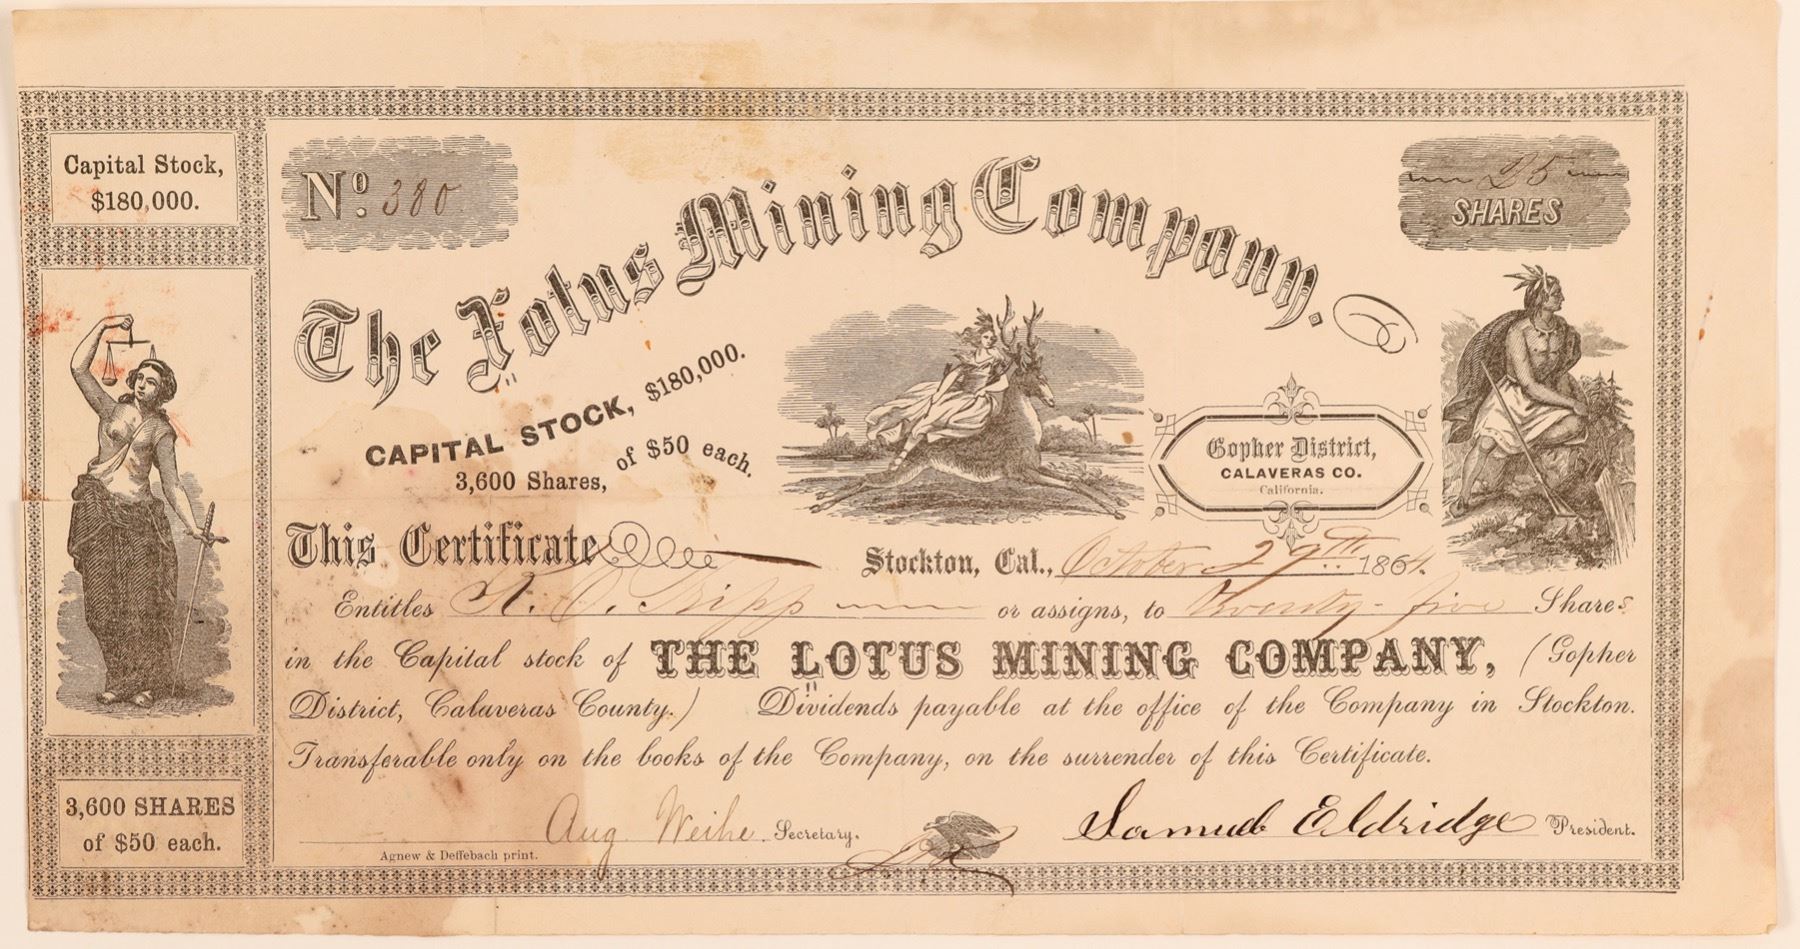 Capital Stock,
$180,000.
No. 380
25
SHARES
The Lotus Mining Company.
CAPITAL STOCK, $180,000.
3,600 Shares, of $50 each.
Gopher District,
CALAVERAS CO.
California.
This Certificate
Stockton, Cal., October 29th 1864.
Entitles Tripp or assigns, to Twenty-five Shares
in the Capital stock of THE LOTUS MINING COMPANY, (Gopher
District, Calaveras County.) Dividends payable at the office of the Company in Stockton.
Transferable only on the books of the Company, on the surrender of this Certificate.
3,600 SHARES
of $50 each.
Aug. Weihe Secretary.
Samuel Eldridge President.
Agnew & Deffebach print.